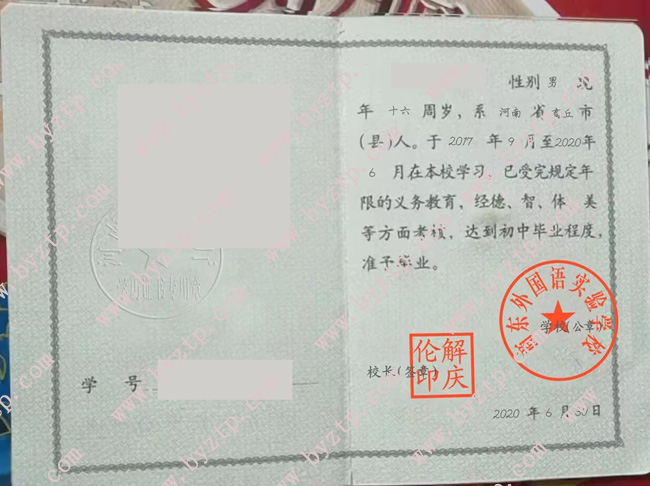 性别 男 现
年 十六 周岁，系 河南 省 玄丘 市
(县)人。于 2017 年 9 月至 2020年
6 月在本校学习，已受完规定年
限的义务教育，经德、智、体 美
等方面考核，达到初中毕业程度，
准予毕业。
东外国语实验学校
学校(公章)
解庆伦印
校长(签章)
学 号
2020 年 6 月 30日
学历证书专用章
www.byztp.com